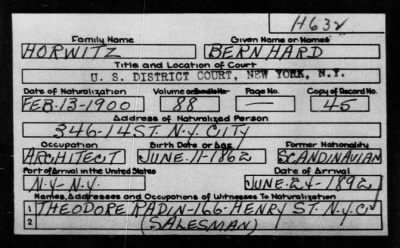 H632
Family Name Given Name or Names
HORWITZ BERNHARD
Title and Location of Court
U. S. DISTRICT COURT, NEW YORK, N.Y.
Date of Naturalization Volume or Bundle No. Page No. Copy of Record No.
FEB-13-1900 88 — 45
Address of Naturalized Person
346-14 ST. N.Y. CITY
Occupation Birth Date or Age Former Nationality
ARCHITECT JUNE-11-1862 SCANDINAVIAN
Port of Arrival in the United States Date of Arrival
N.Y-N.Y. JUNE-24-1892
Names, Addresses and Occupations of Witnesses To Naturalization
THEODORE RADIN-166-HENRY ST. N.Y.C
2 (SALESMAN)